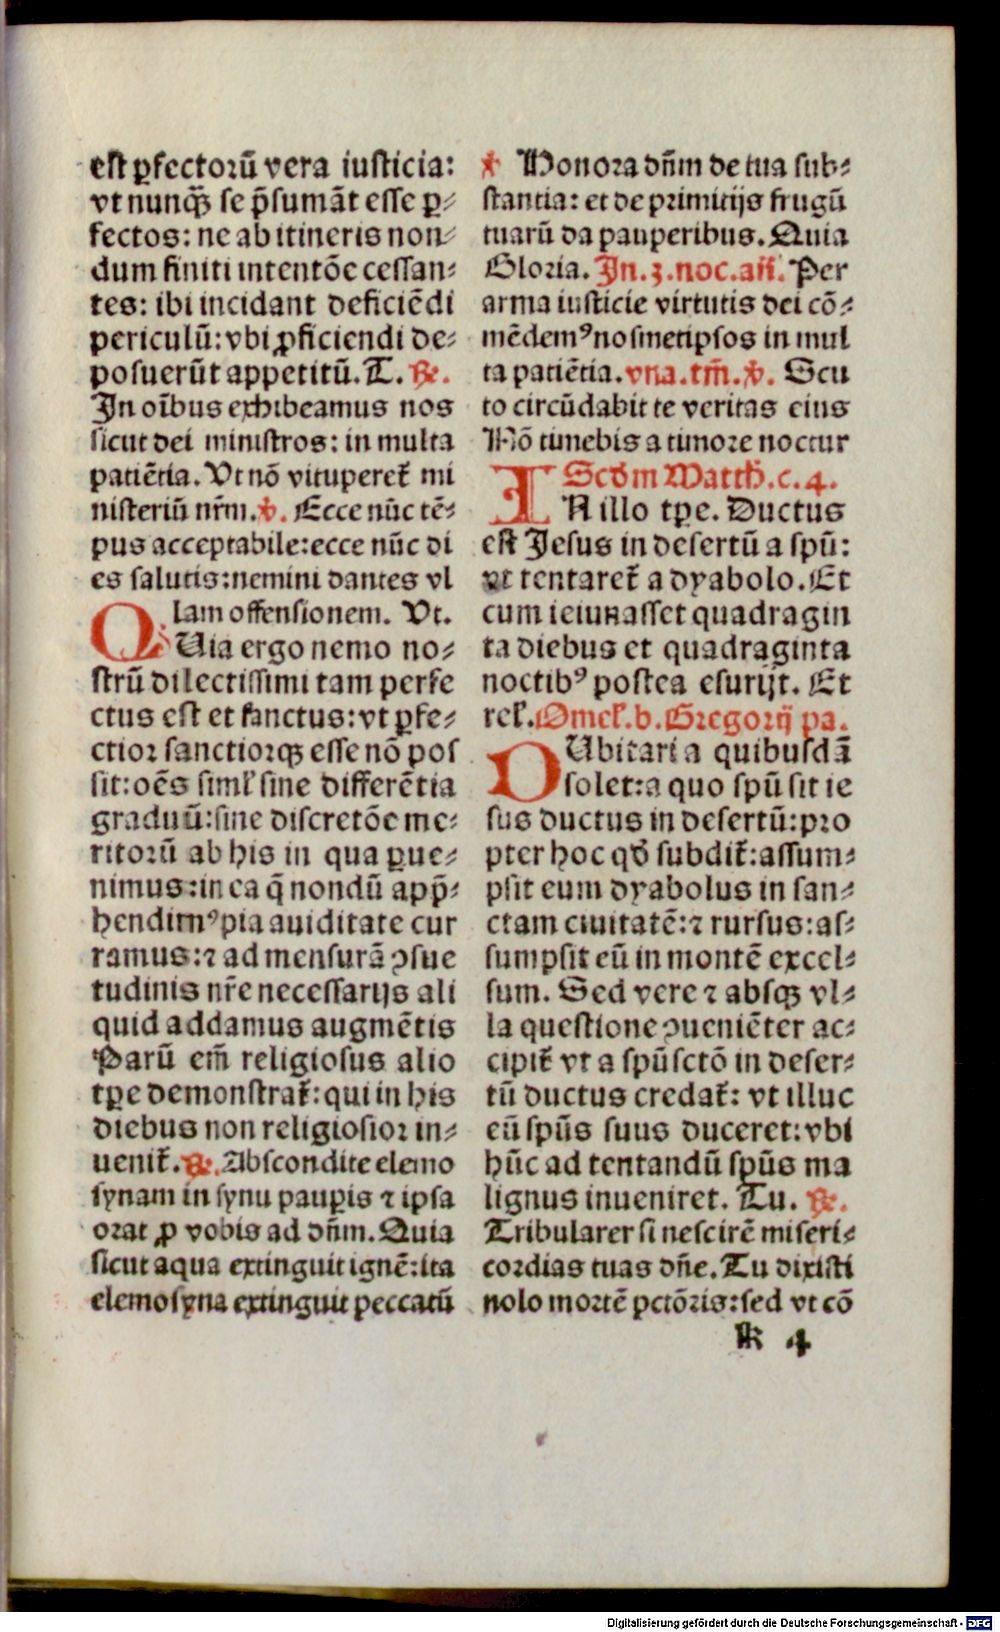 est ꝑfectorũ vera iusticia:
vt nunqȝ̃ se p̃sumãt esse ꝑ⸗
fectos: ne ab itineris non⸗
dum finiti intentõe cessan⸗
tes: ibi incidant deficiẽdi
periculũ: vbi ꝓficiendi de⸗
posuerũt appetitũ. T. ℞.
In oĩbus exhibeamus nos
sicut dei ministros: in multa
patiẽtia. Vt nõ vituperet᷑ mi
nisteriũ nr̃m. ℣. Ecce nũc tẽ⸗
pus acceptabile: ecce nũc di
es salutis: nemini dantes vl
lam offensionem. Vt.
QUia ergo nemo no⸗
strũ dilectissimi tam perfe
ctus est et sanctus: vt ꝑfe⸗
ctior sanctiorqȝ esse nõ pos
sit: oẽs siml̛ sine differẽtia
graduũ: sine discretõe me⸗
ritorũ ab his in qua ꝑue⸗
nimus: in ea q̃ nondũ app̃⸗
hendimꝰ pia auiditate cur
ramus: ⁊ ad mensurã ꝯsue
tudinis nr̃e necessarijs ali
quid addamus augmẽtis
Parũ em̃ religiosus alio
tꝑe demonstrat᷑: qui in his
diebus non religiosior in⸗
uenit᷑. ℞. Abscondite elemo
synam in synu pauꝑis ⁊ ipsa
orat ꝓ vobis ad dñm. Quia
sicut aqua extinguit ignẽ: ita
elemosyna extinguit peccatũ
℣ Honora dñm de tua sub⸗
stantia: et de primitijs frugũ
tuarũ da pauperibus. Quia
Gloria. In. 3. noc. añ. Per
arma iusticie virtutis dei cõ⸗
mẽdemꝰ nosmetipsos in mul
ta patiẽtia. vna. tm̃. ℣. Scu
to circũdabit te veritas eius
Nõ timebis a timore noctur
Scd̃m Matth̃. c. 4.
IN illo tꝑe. Ductus
est Jesus in desertũ a spũ:
vt tentaret᷑ a dyabolo. Et
cum ieiunasset quadragin
ta diebus et quadraginta
noctibꝰ postea esurijt. Et
rel̛. Omel̛. b. Gregorij pa.
DUbitari a quibusdã
solet: a quo spũ sit ie
sus ductus in desertũ: pro
pter hoc qd̛ subdit᷑: assum⸗
psit eum dyabolus in san⸗
ctam ciuitatẽ: ⁊ rursus: as⸗
sumpsit eũ in montẽ excel⸗
sum. Sed vere ⁊ absqȝ vl⸗
la questione ꝯueniẽter ac⸗
cipit᷑ vt a spũsctõ in deser⸗
tũ ductus credat᷑: vt illuc
eũ spũs suus duceret: vbi
hũc ad tentandũ spũs ma
lignus inueniret. Tu. ℞.
Tribularer si nescirẽ miseri⸗
cordias tuas dñe. Tu dixisti
nolo mortẽ pctõris: sed vt cõ
k 4
Digitalisierung gefördert durch die Deutsche Forschungsgemeinschaft - DFG